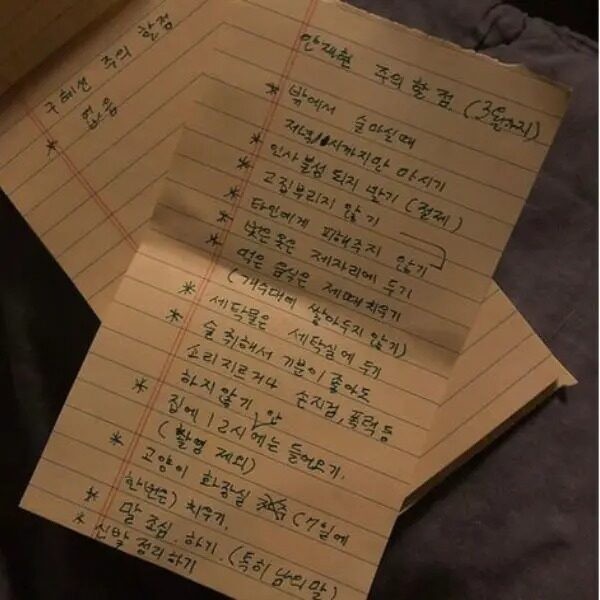 구혜선 주의 할점
* 없음
안재현 주의 할 점 (3월까지)
* 밖에서 술마실때
저녁 11시까지만 마시기
* 인사불성 되지 말기 (절제)
* 고집부리지 않기
* 타인에게 피해주지 않기
* 벗은 옷은 제자리에 두기
* 먹은 음식은 제때 치우기
(개수대에 쌓아두지 않기)
* 세탁물은 세탁실에 두기
* 술 취해서 기분이 좋아도
소리지르거나 손지검, 폭력 등
하지 않기
* 집에 12시 안에는 들어오기.
(촬영 제외)
* 고양이 화장실 (7일에
한번은) 치우기.
* 말 조심. 하기. (특히 남의 말)
* 신발 정리하기